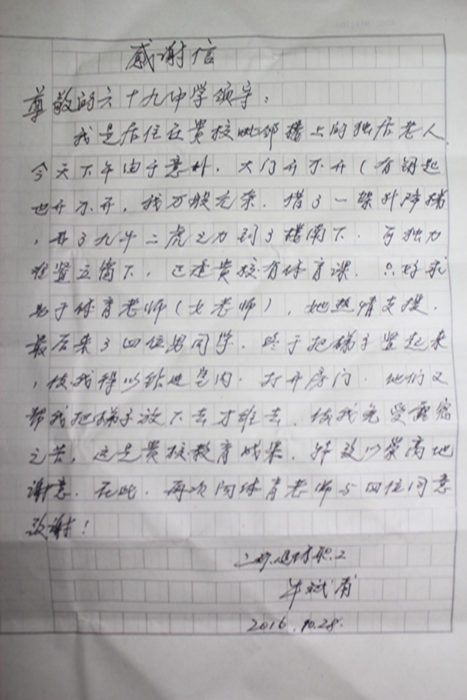 感谢信
尊敬的六十九中学领导：
我是居住在贵校毗邻楼上的独居老人
今天下午由于意外，大门开不开（有钥匙
也开不开，我万般无奈，借了一架升降梯
，弄了九牛二虎之力到了楼窗下，可独力
难竖立窗下，正是贵校有体育课，只好求
助于体育老师（女老师），她热情支援，
最后来了四位男同学，终于把梯子竖起来
，使我得以钻进室内，打开房门，他们又
帮我把梯子放下去才离去，使我免受露宿
之苦，这是贵校教育成果，特致以崇高地
谢意，在此，再次向体育老师与四位同意
致谢！
退休职工
牛斌甫
2016.10.28.